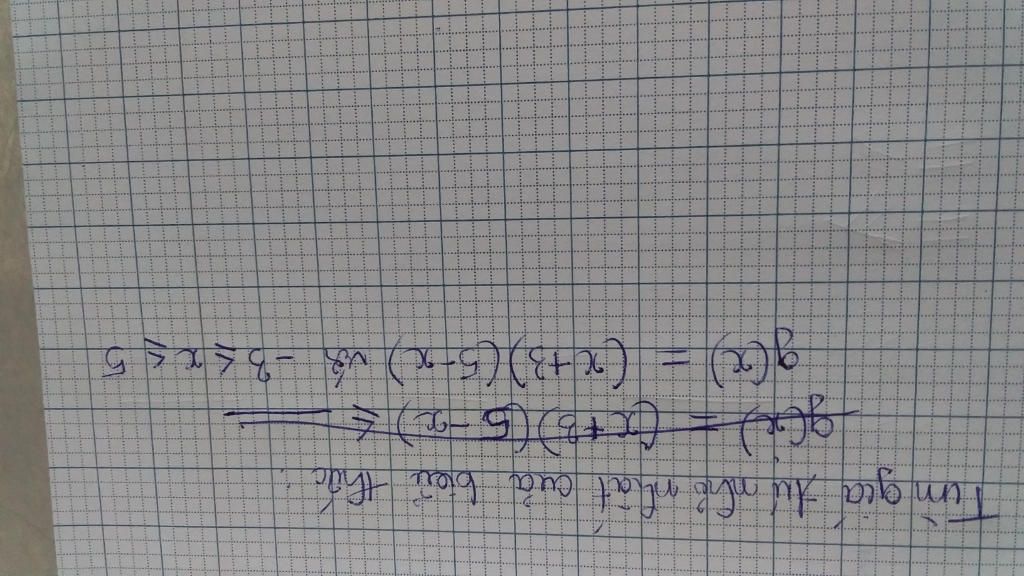 Tìm giá trị nhỏ nhất của biểu thức:
g(x) = (x+3)(5-x) ≤
g(x) = (x+3)(5-x) với -3 ≤ x ≤ 5